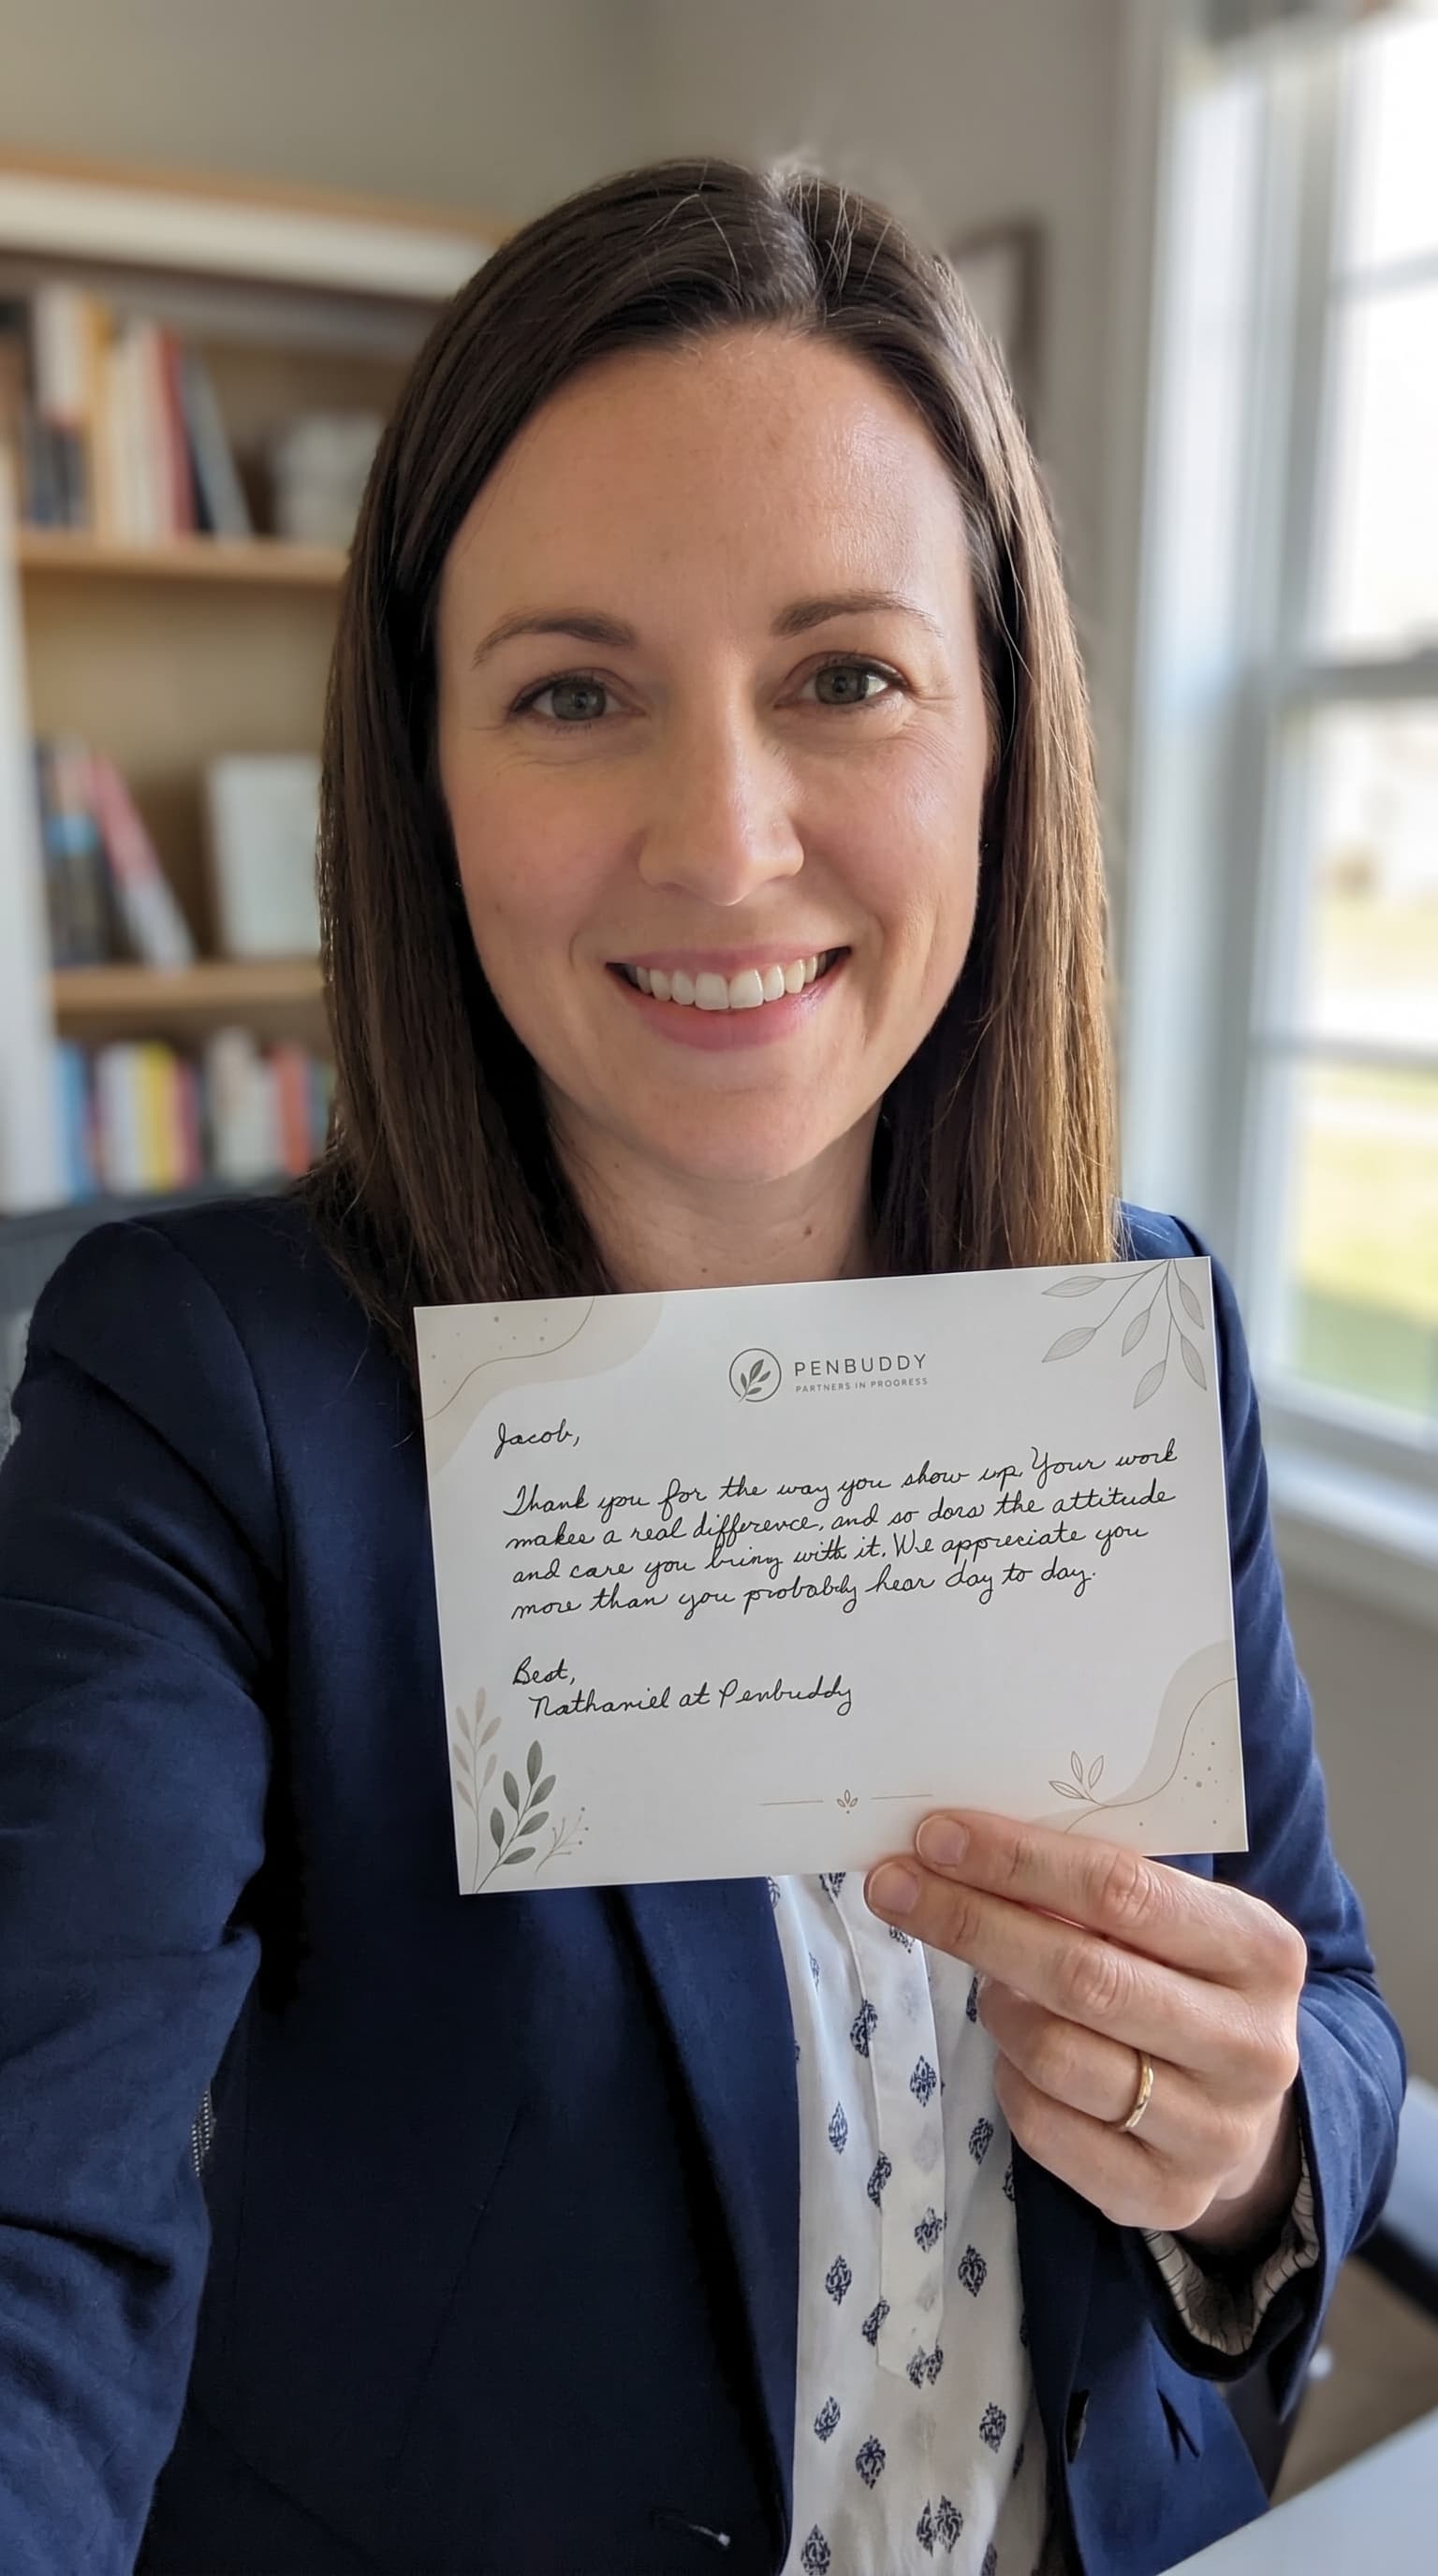 PENBUDDY
PARTNERS IN PROGRESS
Jacob,
Thank you for the way you show up. Your work
makes a real difference, and so does the attitude
and care you bring with it. We appreciate you
more than you probably hear day to day.
Best,
Nathaniel at Penbuddy